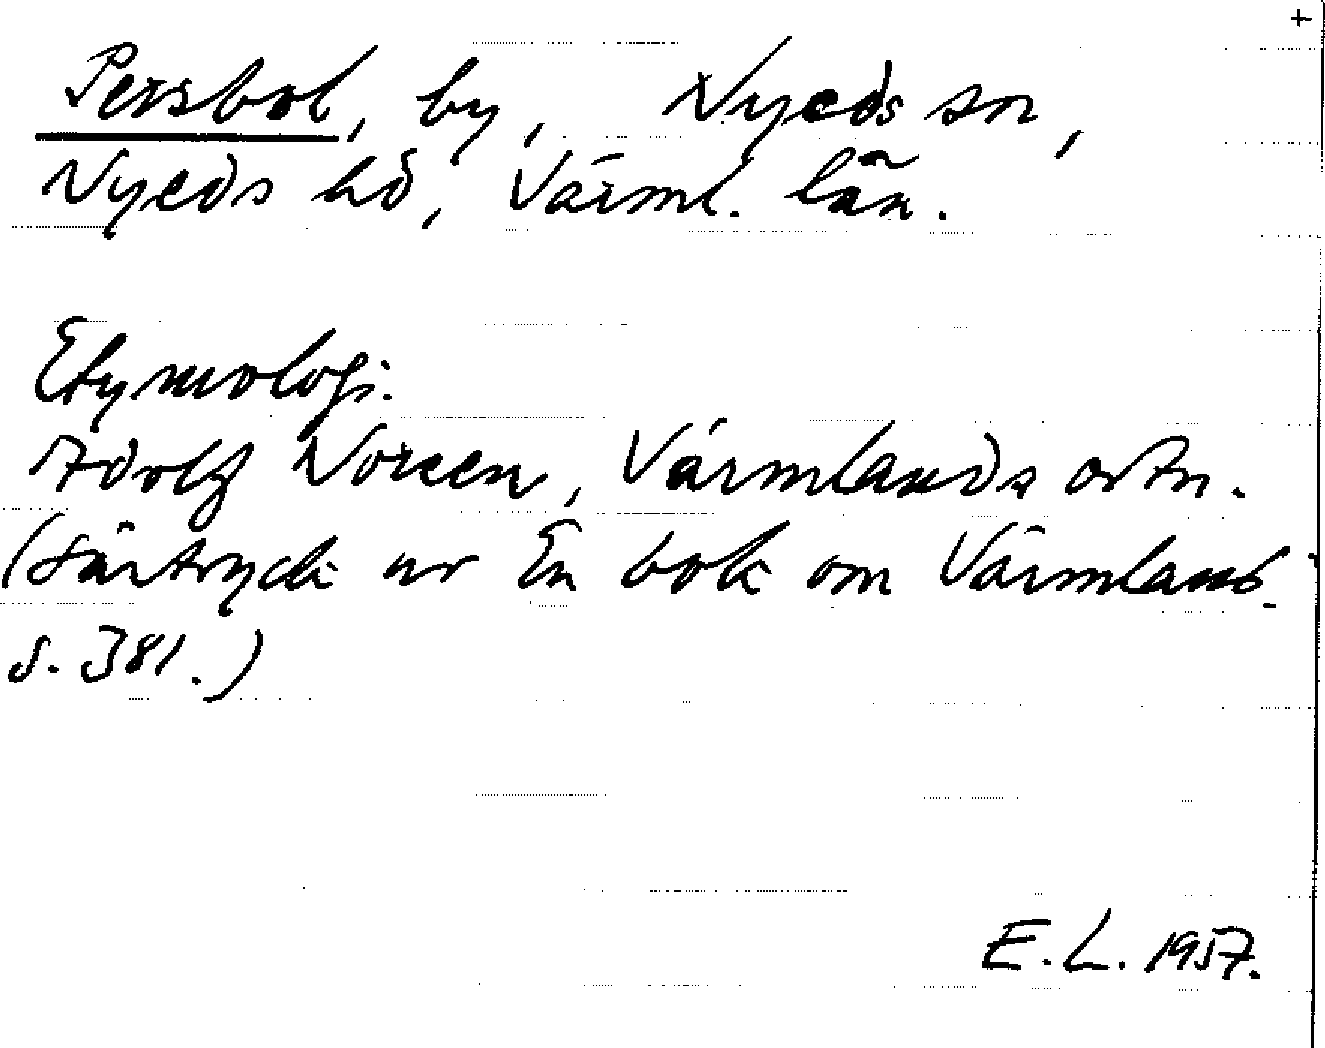 +
Persbol, by, Nyeds sn,
Nyeds hd, Värml. län.
Etymologi.
Adolf Noreen, Värmlands ortn.
(Särtryck ur En bok om Värmland
s. 381.)
E. L. 1957.